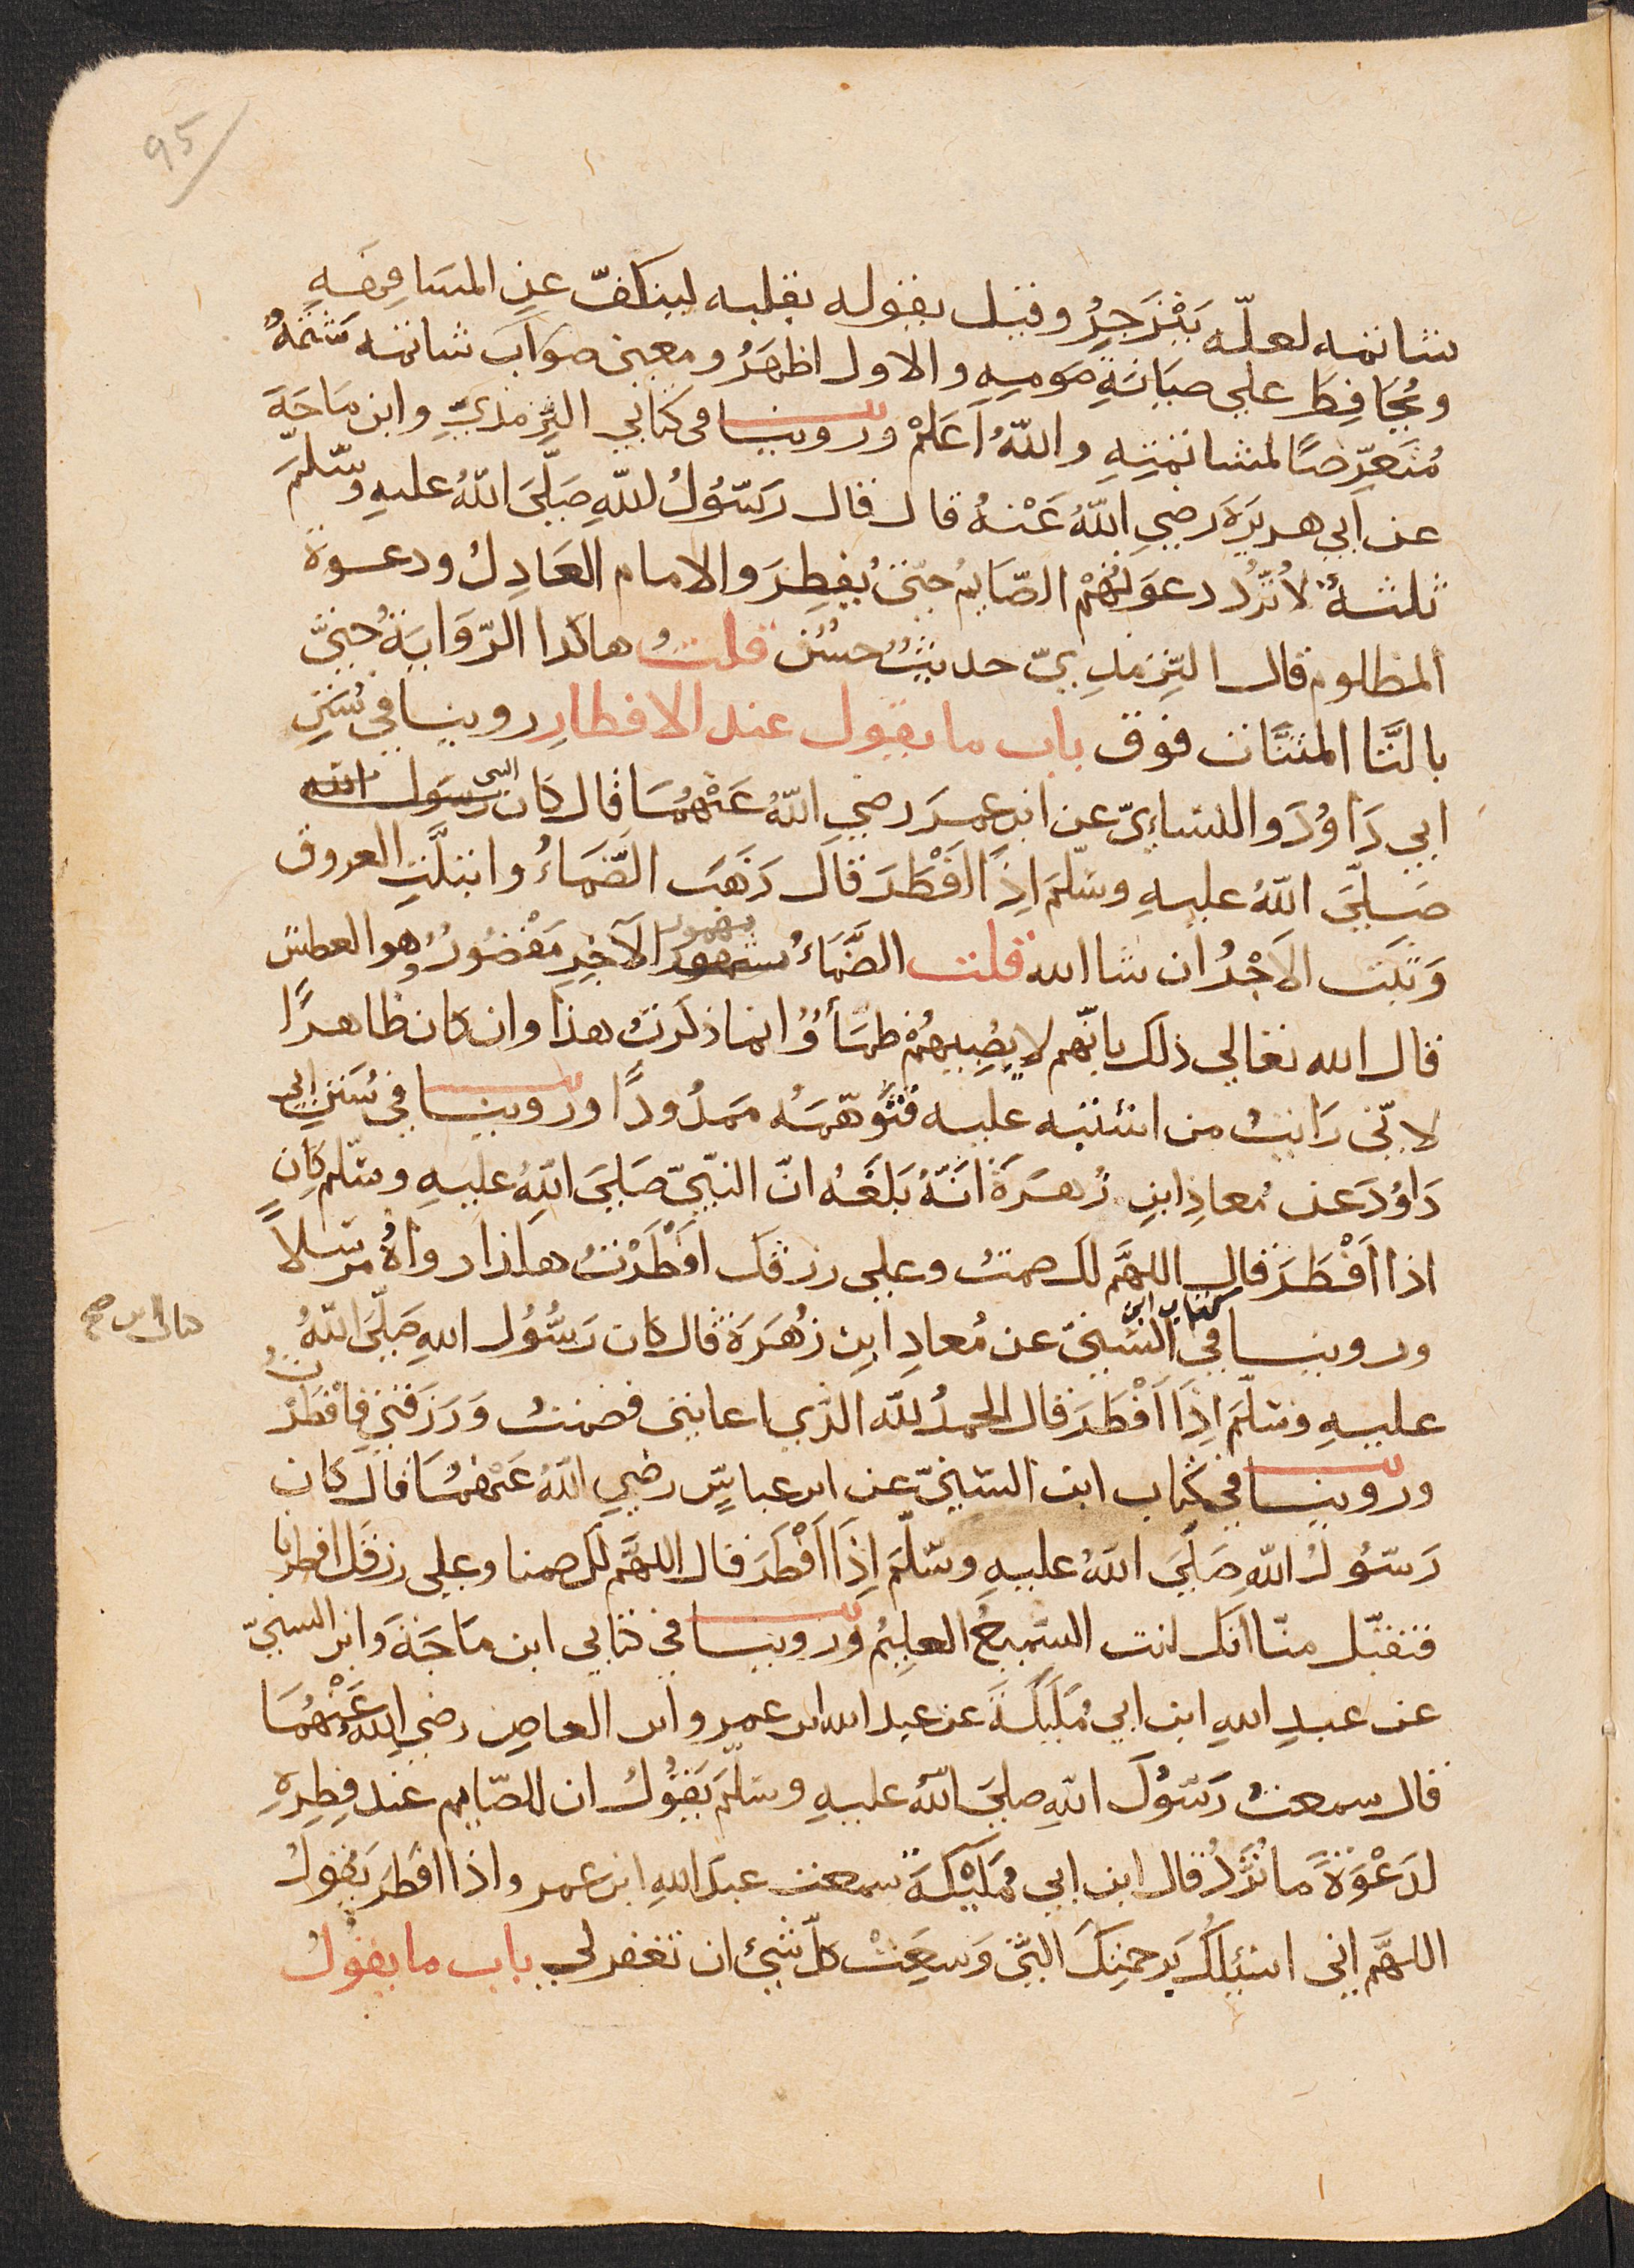 95
شاتمه لعلّه يَنْزَجِرُ وقيل يقوله بقلبه لينكفّ عن المسَافِهَةِ
ويُحَافِظ على صيَانَةِ صومِهِ والاول اظهَرُ ومعنى صوَاب شاتمه شَتَمَهُ
مُتَعَرِّضًا لمشاتمتِهِ واللّهُ اَعلمْ وروينا فى كتابي الترمذيّ وابن مَاجَةَ
عن اَبي هريرَة رضي اللّهُ عَنْهُ قال قال رَسُولُ اللّهِ صَلَّىَ اللّهُ عليهِ وسَلّمَ
ثلثةٌ لاتُرَدُّ دعوَتُهُمْ الصّايمُ حتّى يُفطِرَ والامام العَادِلُ ودعوة
المظلوم قال الترمذِيّ حديثٌ حسَنٌ قلتُ هاكذا الرّوَايَةُ حتىّ
بالتَّا المثنَّات فوق باب ما يقول عند الافطارِ روينا في سُنَنِ
ابي دَاوُدَ والنساءِيّ عن ابن عمرَ رضي اللّهُ عَنْهُمَا قال كَان النبى رسَول الله
صَلَّىَ اللّهُ عليهِ وسَلّمَ اِذَا اَفْطَرَ قَالَ ذَهَبَ الضَّمَاءُ وابتلَّتِ العروق
وَثَبَتَ الاَجْرُ ان شا الله قلت الضَّمَاءُ مهموز الآخِرِ مَقْصُورٌ وهو العطش
قال الله تعالي ذلك بانّهم لا يُصِيبهُمْ ظمَأٌ وُانما ذكرت هذا وان كان ظاهرًا
لانّى رَايتُ من اشتبه عليه فتوَهّمَهُ ممدُودًا وروينا في سُنَنِ ابي
دَاوُدَ عن مُعاذِ ابنِ زُهرَةَ اَنّهُ بَلَغَهُ انّ النبيّ صَلَىَ اللّهُ عليهِ وسَلّم كان
اذا اَفْطَرَ قال اللهمَّ لك صمتُ وعلي رزقك اَفْطَرْتُ هاكذا رواهُ مرسَلاً
وروينا في كتاب ابن السُّنيّ عن مُعاذِ ابنِ زُهرَةَ قال كان رَسُولُ اللهِ صَلَّىَ اللّهُ
عليهِ وسَلّمَ اِذَا اَفْطَرَ قال الحمدُ للّه الذى اعاننى فصَمتُ وَرَزقني فاَفْطَرْتُ
وروينا في كتاب ابن السّنيّ عن ابن عباسٍ رضي اللّهُ عَنْهُمَا قال كان
رَسُولُ اللّهِ صَلَّىَ اللهُ عليهِ وسَلّمَ اِذَا اَفْطَرَ قال اللهمَّ لك صمنا وعلى رزقك افطرنا
فتقبّل منّا انك انت السَّميعُ العليمُ وروينا في كتابي ابن مَاجَة وابن السنيّ
عن عبدِ اللهِ ابن ابي مُلَيكَةَ عن عبد الله ابن عمرو ابن العاص رضي اللّهُ عَنْهُمَا
قال سمعتُ رَسُولَ اللّهِ صلىَ اللّهُ عليهِ وسَلّمَ يَقُولُ ان للصّايم عند فِطرِهِ
لدَعْوَةً مَا تُرَدُّ قال ابن ابي مُلَيْكَةَ سمعت عبدَ اللهِ ابن عمرو اذا افطرَ يَقولُ
اللهمَّ اني اسئلك برحمتِكَ التَّى وَسِعَتْ كلّ شيءٍ ان تغفر لي باب ما يقولُ